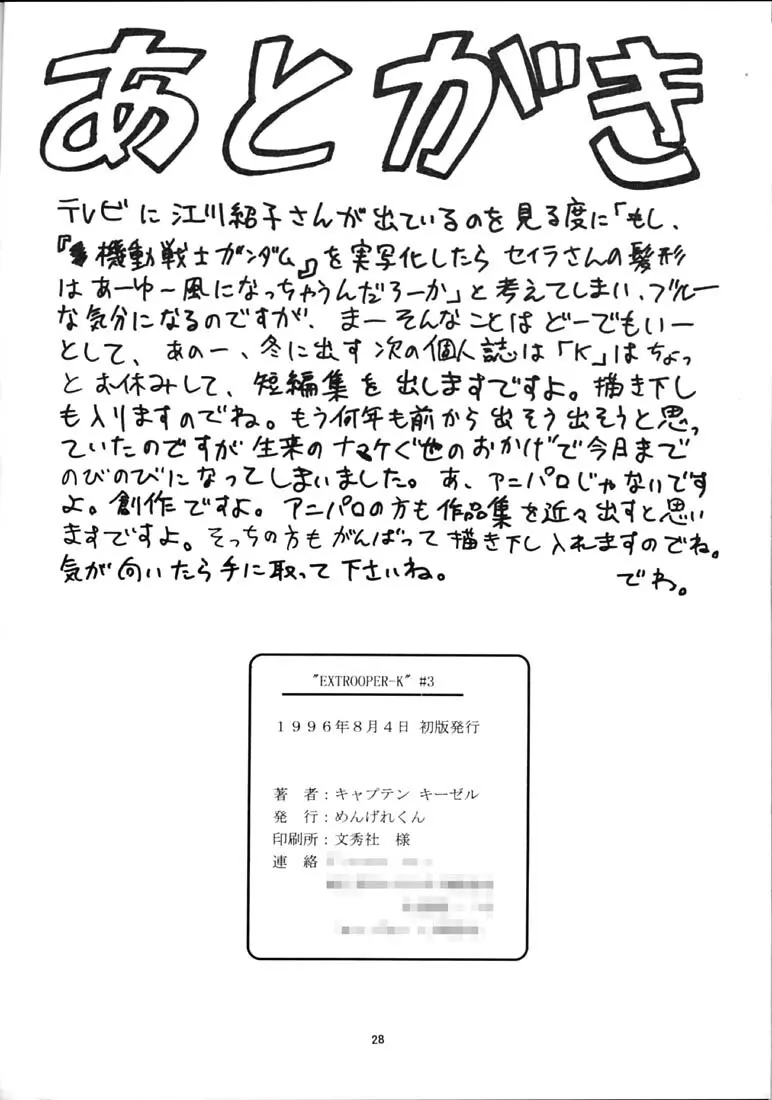 あとがき
テレビに江川紹子さんが出ているのを見る度に「もし、
『機動戦士ガンダム』を実写化したら セイラさんの髪形
は あーゆ〜風になっちゃうんだろーか」と考えてしまい、ブルー
な気分になるのですが、まーそんなことは どーでもいー
として、あのー、冬に出す次の個人誌は「K」はちょっ
とお休みして、短編集を出しますですよ。描き下し
も入りますのでね。もう何年も前から出そう出そうと思っ
ていたのですが生来のナマケぐせのおかげで今日まで
のびのびになってしまいました。あ、アニパロじゃないです
よ。創作ですよ。アニパロの方も作品集を近々出すと思い
ますですよ。そっちの方もがんばって描き下し入れますのでね。
気が向いたら手に取って下さいね。 でわ。
"EXTROOPER-K" #3
１９９６年８月４日 初版発行
著　者：キャプテン キーゼル
発　行：めんげれくん
印刷所：文秀社　様
連　絡
28